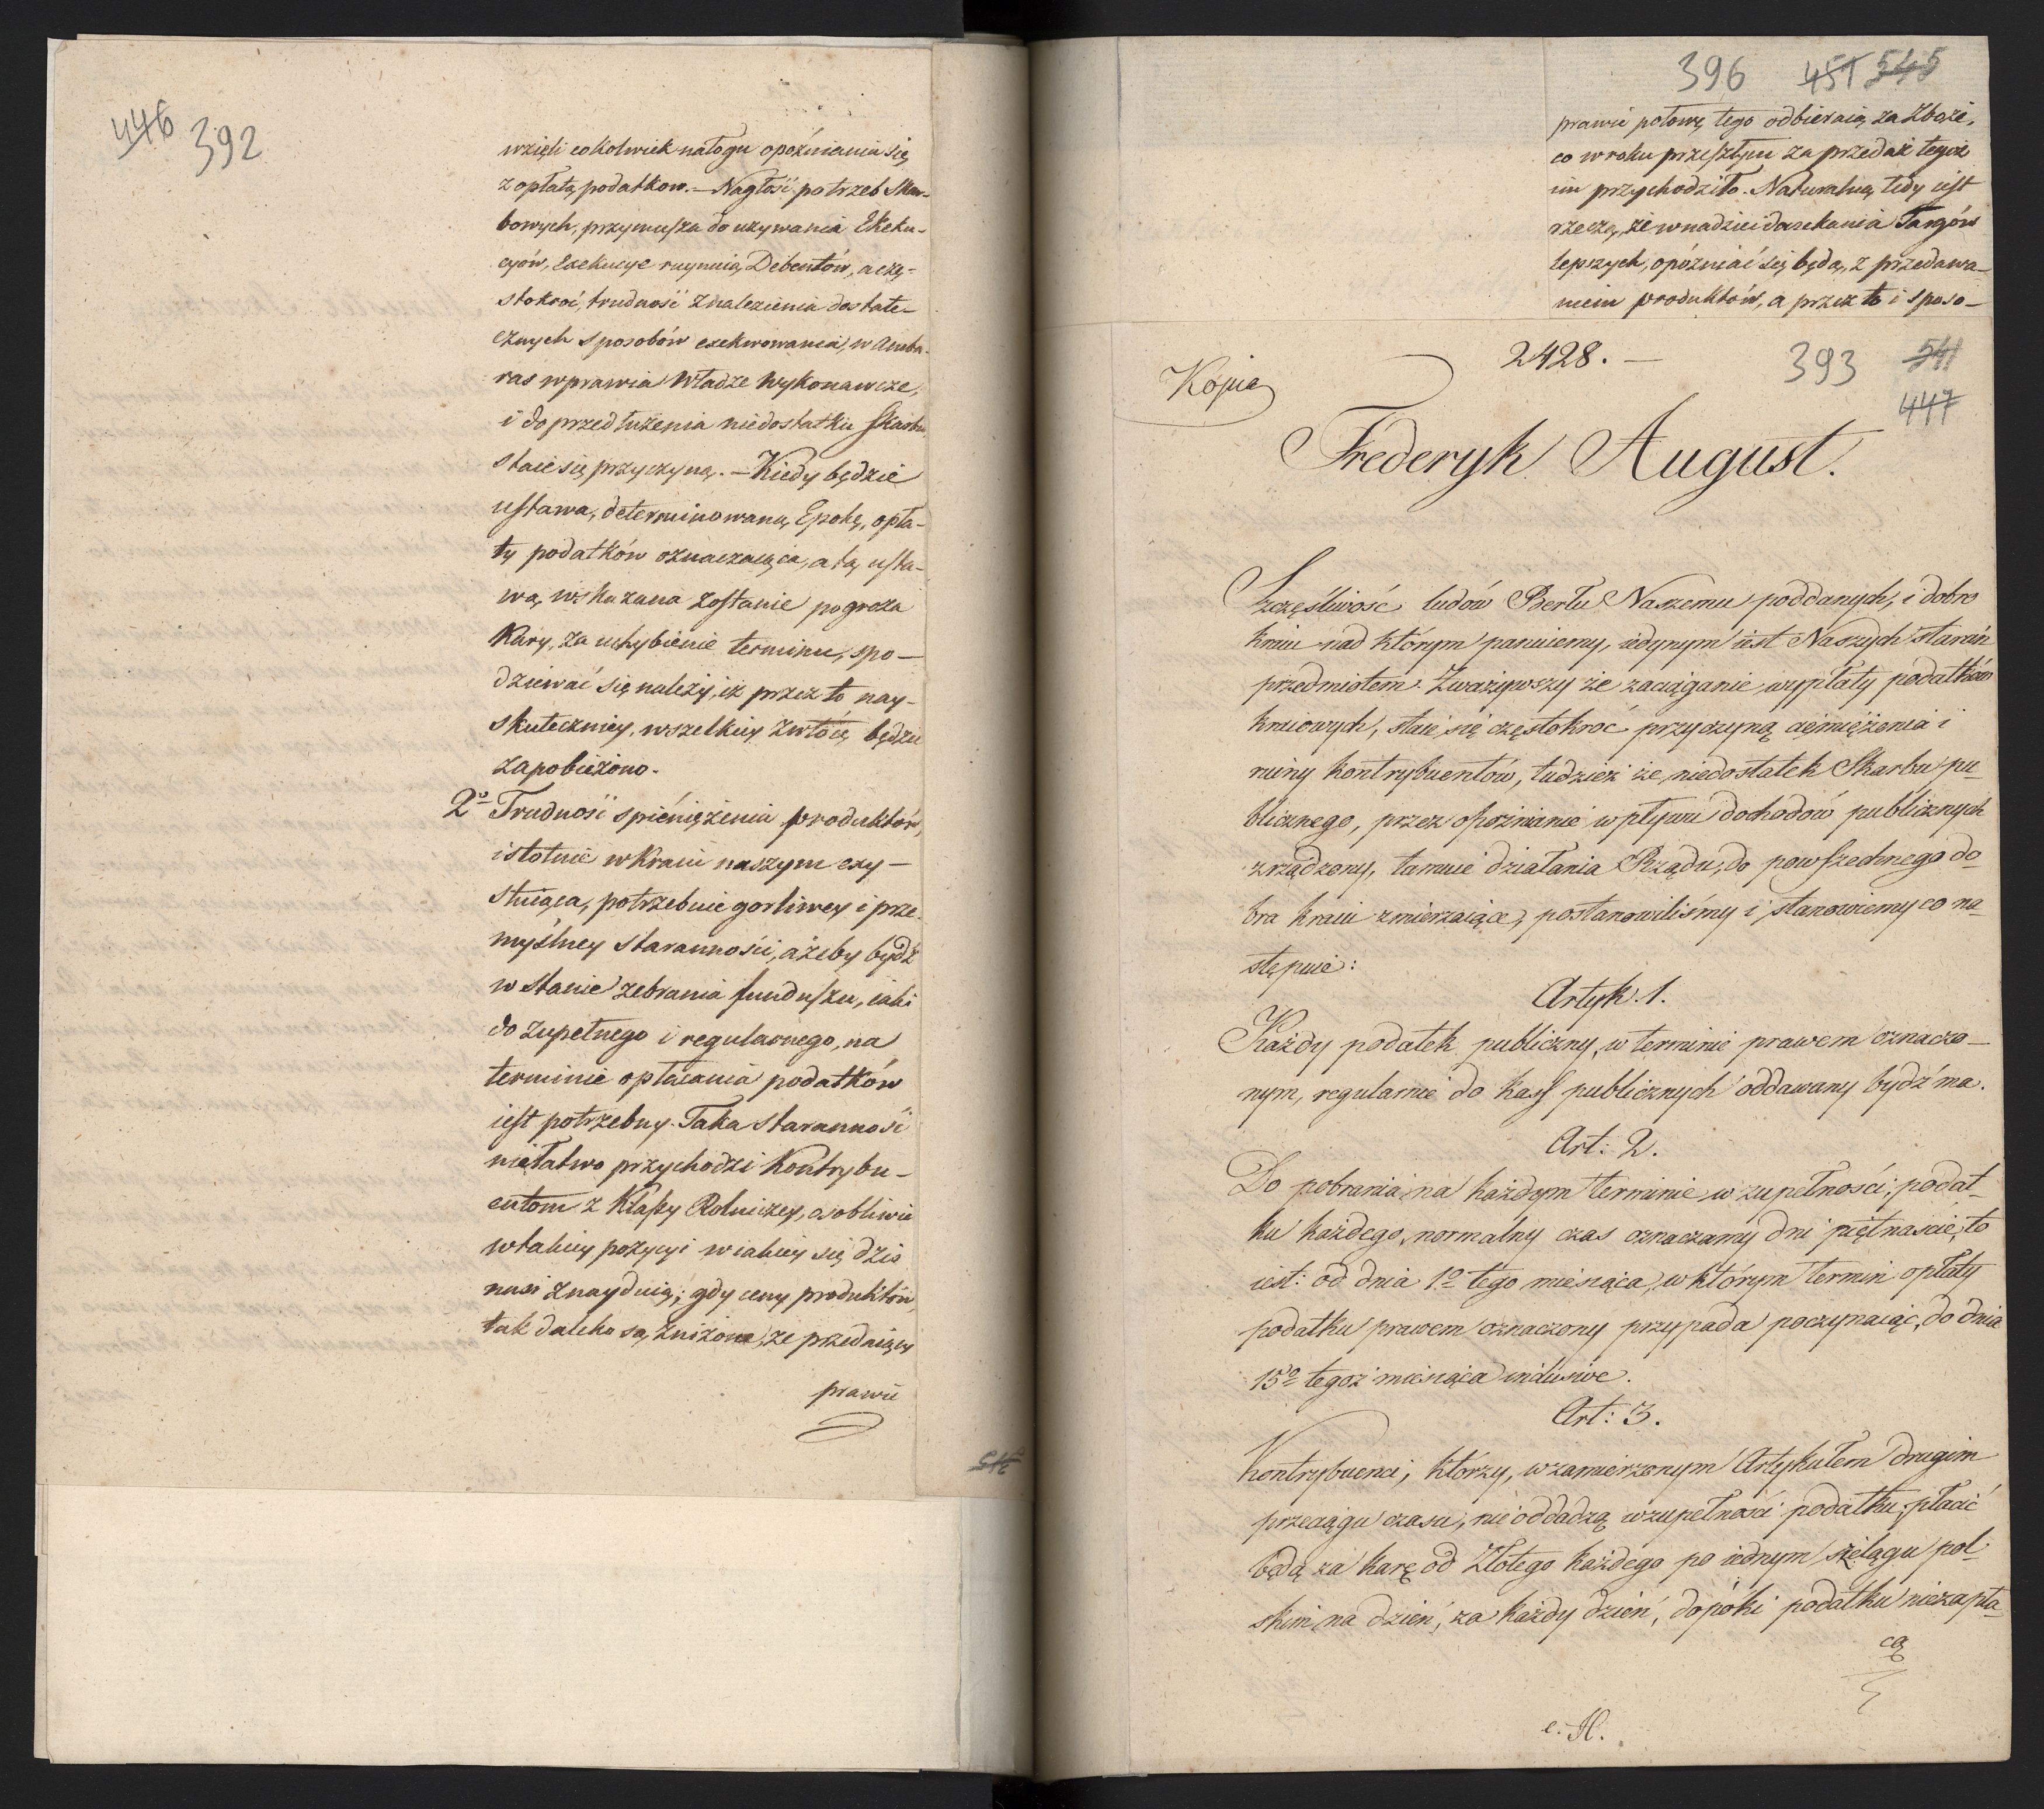 446 392
wzięli cokolwiek nałogu opóźniania się
z opłatą podatkow. — Nagłość potrzeb Skar-
bowych, przymusza do używania Exeku-
cyów, Exekucye ruynuią Debentów, a czę-
stokroć, trudność znalezienia dostate-
cznych sposobów exekwowania, w Amba-
ras wprawia Władze Wykonawcze,
i do przedłużenia niedostatku Skarbu
staie się przyczyną. — Kiedy będzie
ustawa, determinowaną Epokę, opła-
ty podatków oznaczaiąca, a tą usta-
wą, wskazana zostanie pogroza
Kary, za uchybienie terminu, spo-
dziewać się należy, iż przez to nay-
skuteczniey, wszelkiey zwłoce będzie
zapobieżono.
2o Trudność spieniężenia produktów,
istotnie w Kraiu naszym exy-
stuiąca, potrzebuie gorliwey i prze-
myślney staranności, ażeby bydź
w stanie zebrania funduszu, iaki
do zupełnego i regularnego, na
terminie opłacania podatków
iest potrzebny. Taka staranność
niełatwo przychodzi Kontrybu-
entom z Klassy Rolniczey, osobliwie
w takiey pozycyi w iakiey się dziś
nasi znayduią; gdy ceny produktów,
tak daleko są zniżone, że przedaiący
prawie
545
396 451 545
prawie połowę tego odbieraią za Zboże,
co w roku przeszłym za przedaż tegoż
im przychodziło. Naturalną tedy iest
rzeczą, że w nadziei doczekania Targów
lepszych, opóźniać się będą, z przedawa-
niem produktów, a przez to i sposo-
Kopia
2428. —
393 541
447
Frederyk August.
Szczęśliwość ludów Berłu Naszemu poddanych, i dobro
kraiu nad którym panuiemy, iedynym iest Naszych starań
przedmiotem. Zważywszy że zaciąganie wypłaty podatków
kraiowych, staie się częstokroć przyczyną ciemiężenia i
ruiny kontrybuentów, tudzież że niedostatek Skarbu pu-
blicznego, przez opóźnianie wpływu dochodów publicznych
zrządzony, tamuie działania Rządu, do powszechnego do-
bra kraiu zmierzaiące, postanowiliśmy i stanowiemy co na-
stępuie:
Artyk. 1.
Każdy podatek publiczny, w terminie prawem oznaczo-
nym, regularnie do kass publicznych oddawany bydź ma.
Art: 2.
Do pobrania na każdym terminie, w zupełności, podat-
ku każdego, normalny czas oznaczamy dni piętnaście, to
iest: od dnia 1o tego miesiąca, w którym termin opłaty
podatku prawem oznaczony przypada poczynaiąc, do dnia
15o tegoż miesiąca inclusive.
Art: 3.
Kontrybuenci, którzy, w zamierzonym Artykułem drugim
przeciągu czasu, nie oddadzą w zupełności podatku, płacić
będą za karę od Złotego każdego po iednym szelągu pol-
skim na dzień, za każdy dzień, dopóki podatku niezapła-
cą